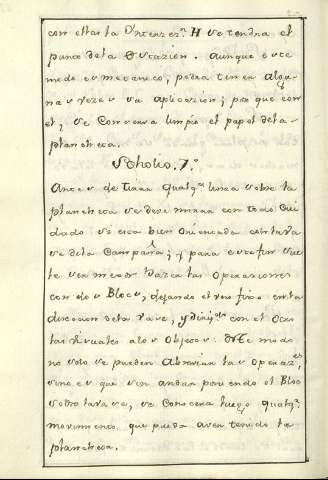 con ellas la Yntenzen. H se tendra el
punto de la Estazion. Aunque este
medo es mecanico, podra tener algu-
nas vezes su aplicazion; por que con
el, se conserva limpio el papel de la
plancheta.
Scholio. 7.º
Antes de tirar qualqª linea sobre la
plancheta se debe mirar con todo cui-
dado si esta bien orientada
se dela Campaña; y para este fin sue-
le ser mejor hazer las operaciones
con dos Blocs, dejando el uno fixo en la
direcion dela vase, y dirigir con el otro
las visuales a los objetos. De este modo
no solo se pueden abreviar las operazes
sino es que sin andar poniendo el Bloc
sobre la vase, se conozera luego qualqª
movimiento que pueda aver tenido la
plancheta.